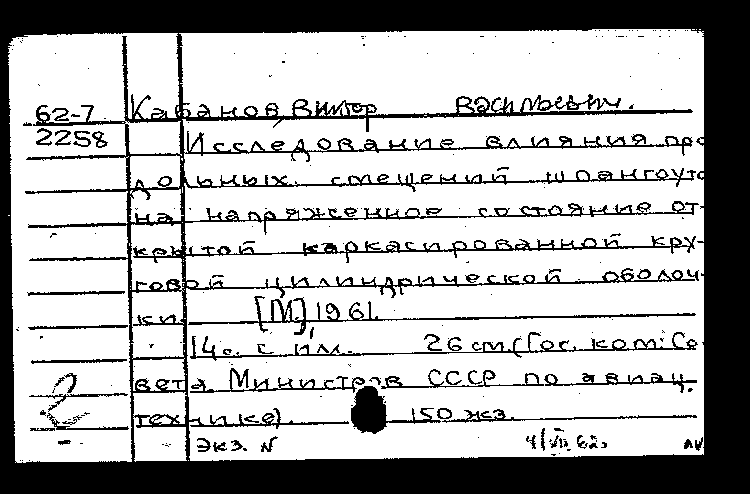 62-7 Кабанов Виктор Васильевич.
2258 Исследование влияния про
дольных смещений шпангоуто
на напряженное состояние от-
крытой каркасированной кру-
говой цилиндрической оболоч-
ки. [М], 1961.
14 с. с ил. 26 см. (Гос. ком. Со-
вета Министров СССР по авиац.
технике). 150 экз.
Экз. N 4/VII 62.